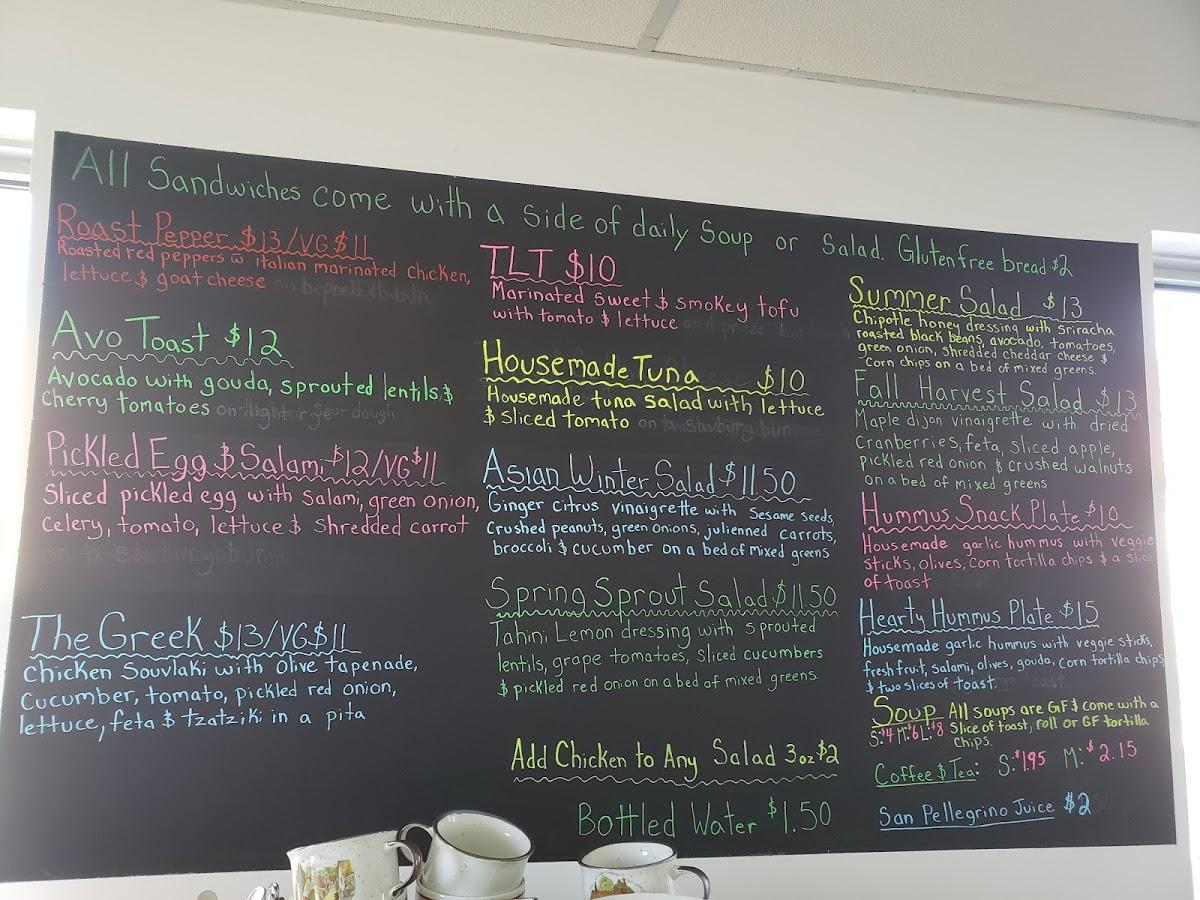 All Sandwiches come with a side of daily Soup or Salad. Glutenfree bread $2
Roast Pepper $13/VG $11
Roasted red peppers w italian marinated chicken,
lettuce & goat cheese
Avo Toast $12
Avocado with gouda, sprouted lentils &
cherry tomatoes
Pickled Egg & Salami $12/VG $11
Sliced pickled egg with salami, green onion,
celery, tomato, lettuce & shredded carrot
The Greek $13/VG $11
chicken Souvlaki with olive tapenade,
cucumber, tomato, pickled red onion,
lettuce, feta & tzatziki in a pita
TLT $10
Marinated sweet & smokey tofu
with tomato & lettuce
Housemade Tuna $10
Housemade tuna salad with lettuce
& sliced tomato
Asian Winter Salad $11.50
Ginger citrus vinaigrette with sesame seeds,
crushed peanuts, green onions, julienned carrots,
broccoli & cucumber on a bed of mixed greens
Spring Sprout Salad $11.50
Tahini Lemon dressing with sprouted
lentils, grape tomatoes, sliced cucumbers
& pickled red onion on a bed of mixed greens.
Add Chicken to Any Salad 3oz $2
Bottled Water $1.50
Summer Salad $13
Chipotle honey dressing with sriracha
roasted black beans, avocado, tomatoes,
green onion, shredded cheddar cheese &
corn chips on a bed of mixed greens.
Fall Harvest Salad $13
Maple dijon vinaigrette with dried
cranberries, feta, sliced apple,
pickled red onion & crushed walnuts
on a bed of mixed greens
Hummus Snack Plate $10
Housemade garlic hummus with veggie
sticks, olives, corn tortilla chips & a slice
of toast
Hearty Hummus Plate $15
Housemade garlic hummus with veggie sticks,
fresh fruit, salami, olives, gouda, corn tortilla chips
& two slices of toast.
Soup All soups are GF & come with a
S:$4 M:$6 L:$8 Slice of toast, roll or GF tortilla
chips.
Coffee & Tea: S:$1.95 M:$2.15
San Pellegrino Juice $2